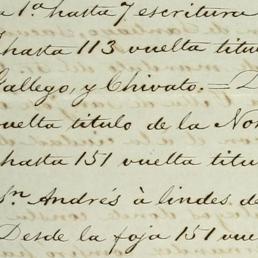 a 1ª hasta 7 escritura
hasta 113 vuelta titul
Gallego, y Chivato. = D
vuelta titulo de la Nor
hasta 151 vuelta titu
Sn Andrés à lindes de
Desde la foja 151 vue